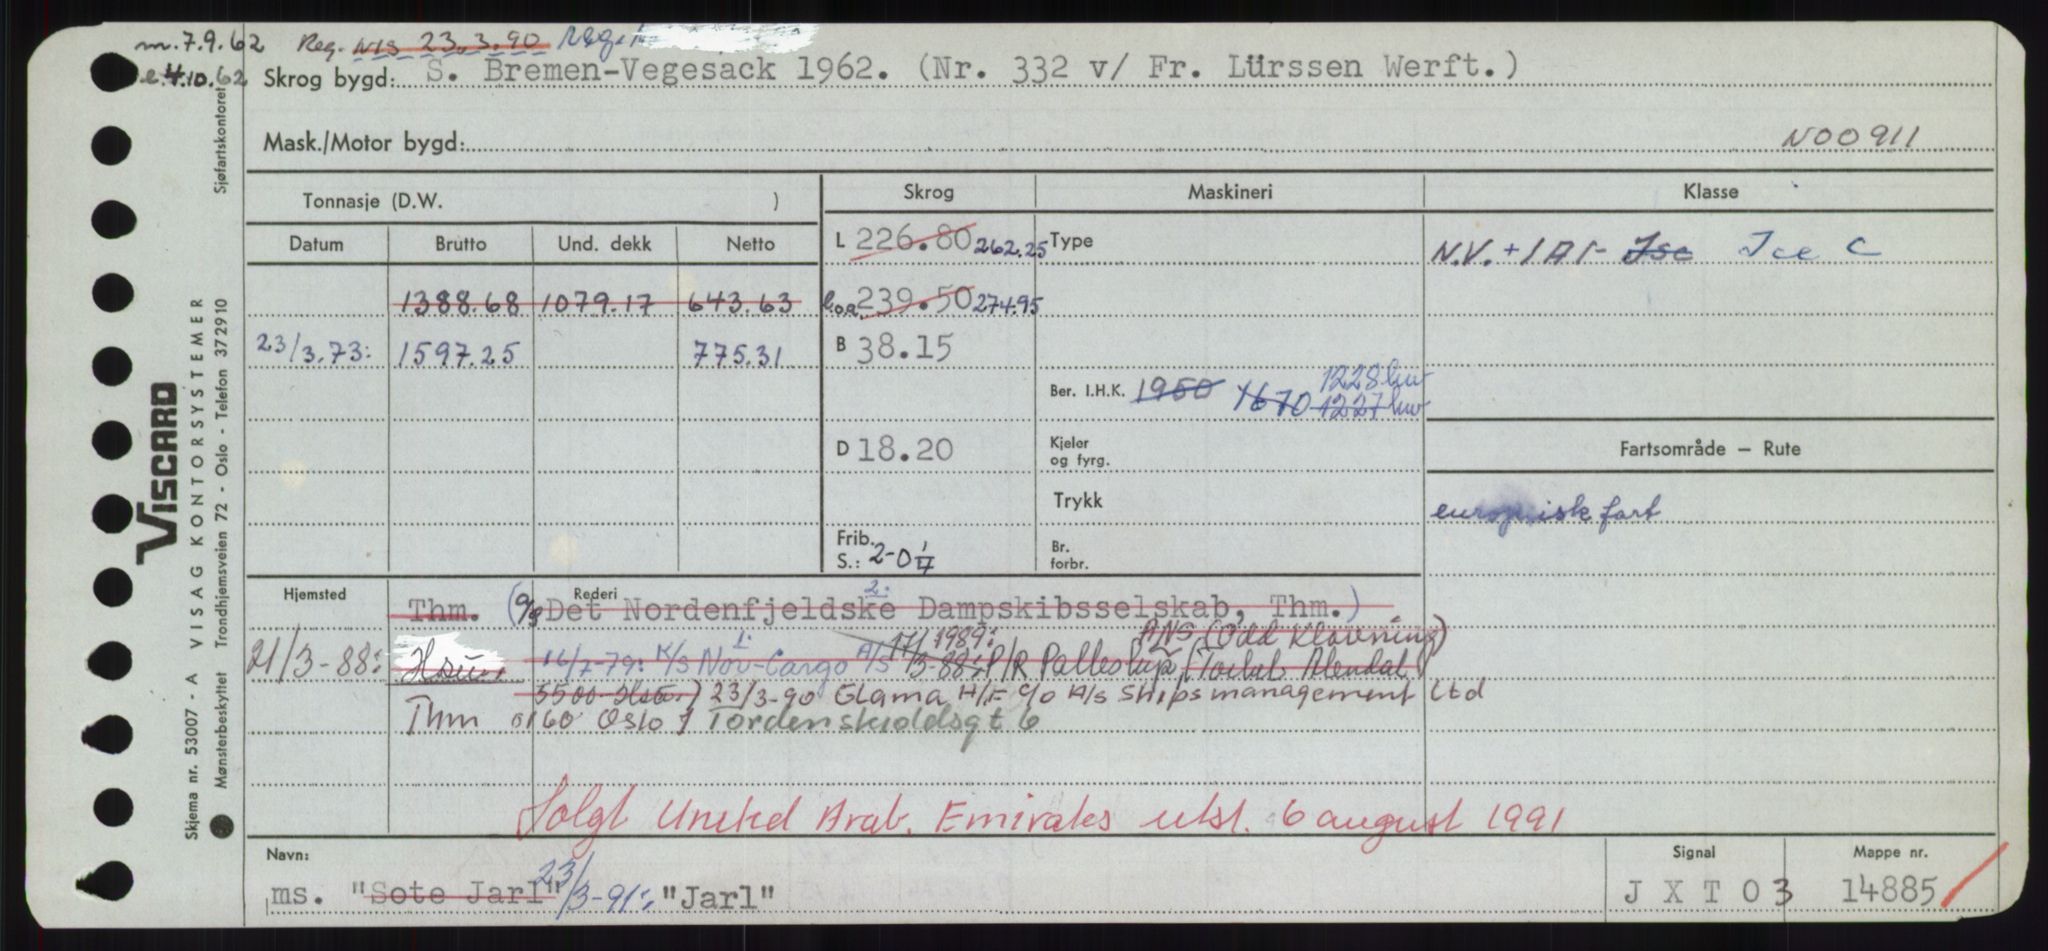 m.7.9.62 Reg. NIS 23.3.90
e.4.10.62
Skrog bygd: S. Bremen-Vegesack 1962. (Nr. 332 v/ Fr. Lürssen Werft.)
Mask./Motor bygd: N00911
Tonnasje (D.W. )
Skrog Maskineri Klasse
Datum Brutto Und. dekk Netto
L 226.80 262.25 Type
N.V. + 1A1- Isc Ice C
1388.68 1079.17 643.63
l.o.a. 239.50 274.95
23/3.73: 1597.25 775.31
B 38.15
Ber. I.H.K. 1950 1670 1227 kw 1228 kw
D 18.20
Kjeler og fyrg.
Fartsområde — Rute
Trykk
europeisk fart
Frib. S.: 2-0 1/4
Br. forbr.
Hjemsted Rederi
Thm. (9/8 Det Nordenfjeldske Dampskibsselskab, Thm.) 2.
ANS (Odd Kløvning)
21/3-88: 16/7-79: K/S Nor-Cargo A/S 1. 17/3-88: 1989: P/R
5500 23/3-90 Glama H/F c/o A/S Shipsmanagement Ltd
Thm 0160 Oslo 1 Tordenskioldsgt 6
Solgt United Arab. Emirates utsl. 6 august 1991
Navn: Signal Mappe nr.
ms. "Sote Jarl" 23/3-91: "Jarl" J X T O 3 14885
Skjema nr. 53007 - A VISAG KONTORSYSTEMER Sjøfartskontoret
Mønsterbeskyttet Trondhjemsveien 72 - Oslo - Telefon 372910
VISCARD